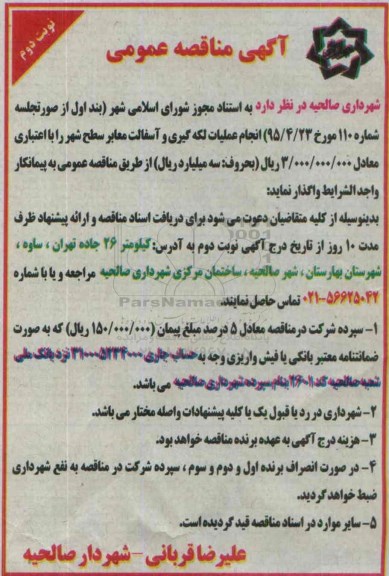 نوبت دوم
آگهی مناقصه عمومی
شهرداری صالحیه در نظر دارد به استناد مجوز شورای اسلامی شهر (بند اول از صورتجلسه
شماره ۱۱۰ مورخ ۹۵/۴/۲۳) انجام عملیات لکه گیری و آسفالت معابر سطح شهر را با اعتباری
معادل ۳/۰۰۰/۰۰۰/۰۰۰ ریال (بحروف: سه میلیارد ریال) از طریق مناقصه عمومی به پیمانکار
واجد الشرایط واگذار نماید:
بدینوسیله از کلیه متقاضیان دعوت می شود برای دریافت اسناد مناقصه و ارائه پیشنهاد ظرف
مدت ۱۰ روز از تاریخ درج آگهی نوبت دوم به آدرس: کیلومتر ۲۶ جاده تهران ، ساوه ،
شهرستان بهارستان ، شهر صالحیه ، ساختمان مرکزی شهرداری صالحیه مراجعه و یا با شماره
۰۲۱-۵۶۶۲۵۰۴۲ تماس حاصل نمایند.
۱- سپرده شرکت در مناقصه معادل ۵ درصد مبلغ پیمان (۱۵۰/۰۰۰/۰۰۰ ریال) که به صورت
ضمانتنامه معتبر بانکی یا فیش واریزی وجه به حساب جاری ۳۱۰۰۰۵۲۳۴۰۰۰ نزد بانک ملی
شعبه صالحیه کد ۲۶۰۱ بنام سپرده شهرداری صالحیه می باشد.
۲- شهرداری در رد یا قبول یک یا کلیه پیشنهادات واصله مختار می باشد.
۳- هزینه درج آگهی به عهده برنده مناقصه خواهد بود.
۴- در صورت انصراف برنده اول و دوم و سوم ، سپرده شرکت در مناقصه به نفع شهرداری
ضبط خواهد گردید.
۵- سایر موارد در اسناد مناقصه قید گردیده است.
علیرضا قربانی - شهردار صالحیه